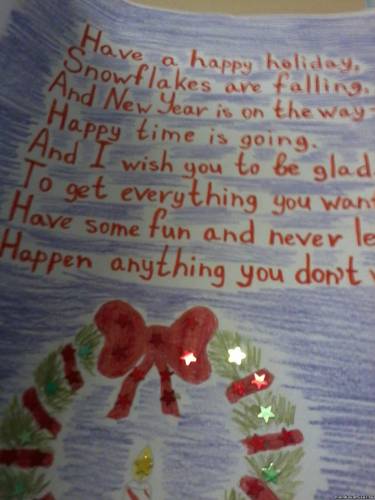 Have a happy holiday,
Snowflakes are falling,
And New Year is on the way-
Happy time is going.
And I wish you to be glad
To get everything you want
Have some fun and never le
Happen anything you don't